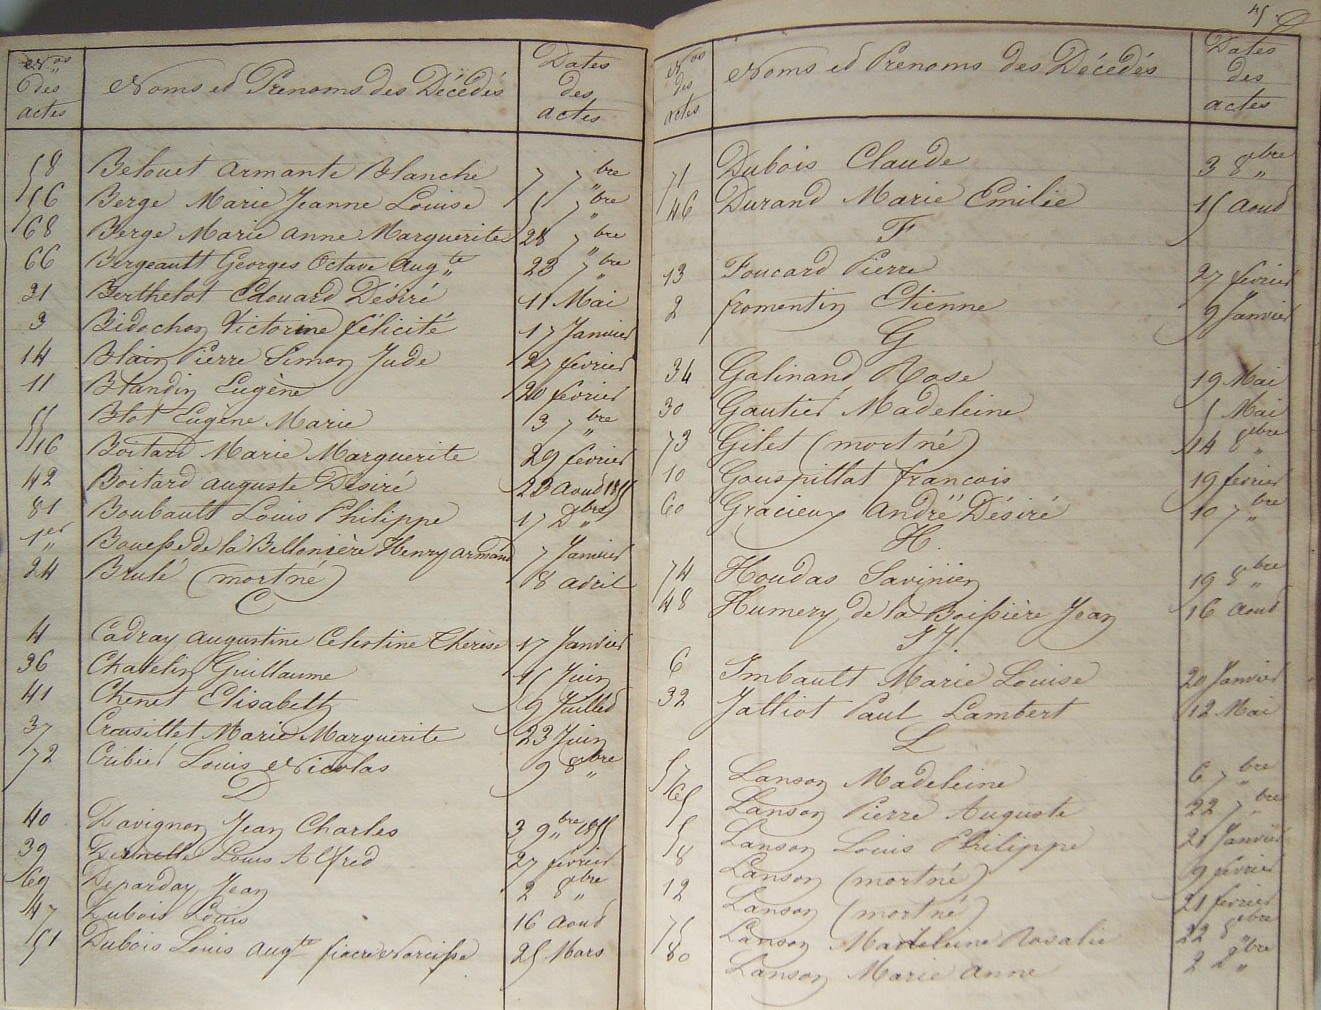 Nos des actes
Noms et Prenoms des Décédés
Dates des actes
58 Belouet Armante Blanche 7 7bre
56 Berge Marie Jeanne Louise 5 7bre
68 Berge Marie Anne Marguerite 28 7bre
66 Bergeault Georges Octave Augte 23 7bre
31 Berthelot Edouard Désiré 11 Mai
3 Bidochon Victorine félicité 17 Janvier
14 Blain Pierre Simon Jude 27 février
11 Blandin Eugène 20 février
55 Blot Eugène Marie 3 7bre
16 Boitard Marie Marguerite 29 février
42 Boitard Auguste Désiré 23 Aout
81 Boubault Louis Philippe 17 Dbre
1er Bouesse de la Bellonière Henry Armand 7 Janvier
24 Brulé (mort né) 8 avril
C
4 Cadray Augustine Celestine Therèse 17 Janvier
36 Chatelin Guillaume Juin
41 Chenet Elisabeth 9 Juillet
37 Crousillet Marie Marguerite 23 Juin
72 Cribier Louis Nicolas 9 8bre
D
40 Davignon Jean Charles
39 Louis Alfred 27 février
69 Deparday Jean 2 8bre
47 Dubois Louis 16 Aout
51 Dubois Louis Augte fiacre Narcisse 25 Mars
Nos des actes
Noms et Prenoms des Décédés
Dates des actes
71 Dubois Claude 3 8bre
46 Durand Marie Emilie 15 Aout
F
13 Foucard Pierre 27 février
2 fromentin Etienne 9 Janvier
G
34 Galinand Rose 19 Mai
30 Gautier Madeleine 5 Mai
73 Gilet (mort né) 14 8bre
10 Gouspillat francois 19 février
60 Gracieux André Désiré 10 7bre
H
74 Houdas Savinien 19 8bre
48 Humery de la Boissière Jean 16 Aout
I J.
6 Imbault Marie Louise 20 Janvier
32 Jalliot Paul Lambert 12 Mai
L
57 Lanson Madeleine 6 7bre
65 Lanson Pierre Auguste 22 7bre
5 Lanson Louis Philippe 21 Janvier
8 Lanson (mort né) 9 février
12 Lanson (mort né) 21 février
75 Lanson Madeleine Rosalie 22 8bre
80 Lanson Marie Anne